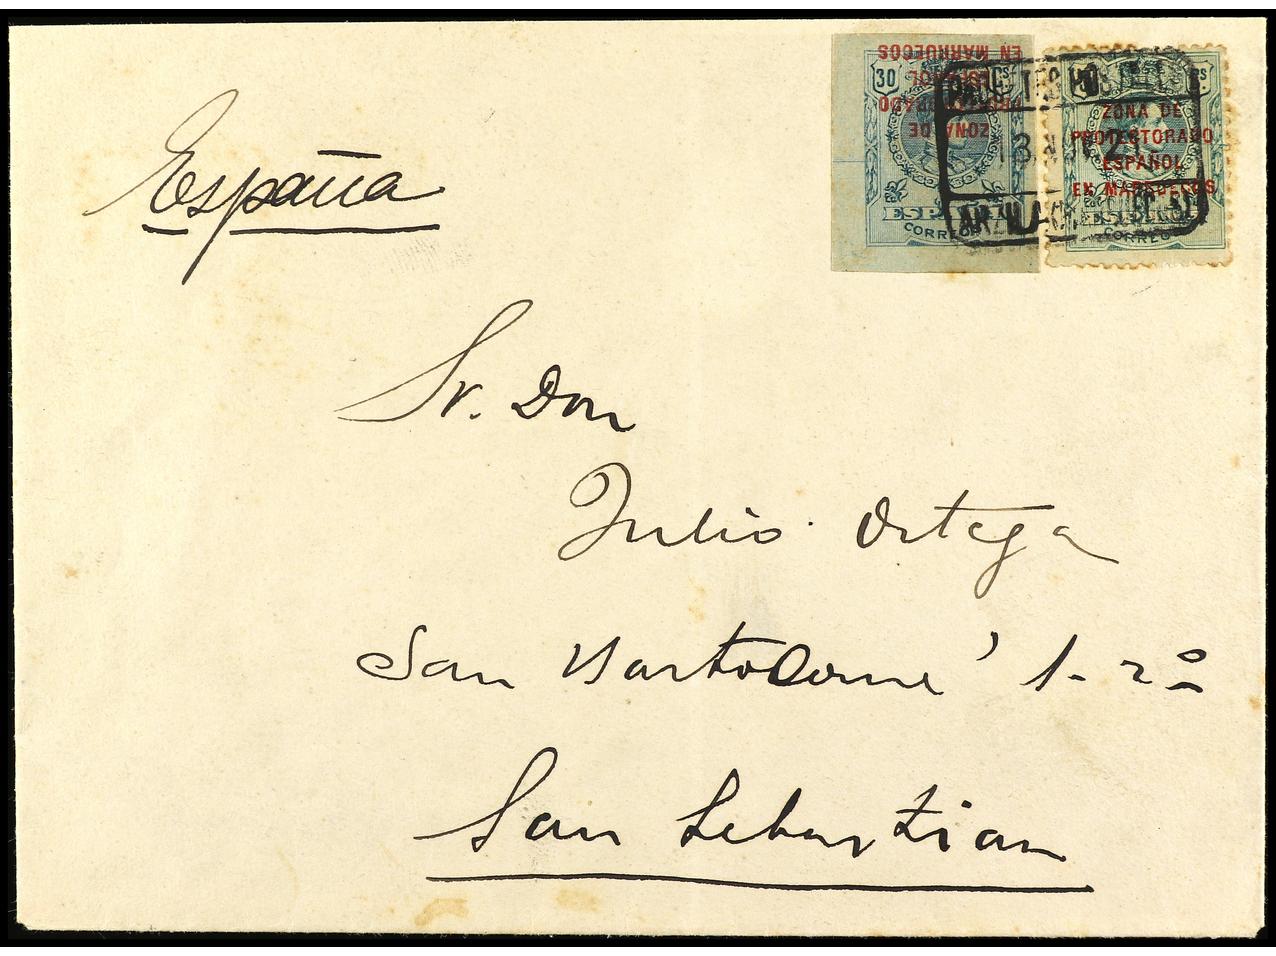 EN MARRUECOS
ESPAÑOL
PROTECTORADO
ZONA DE
30 Cs
ESPAÑA
CORREOS
ZONA DE
PROTECTORADO
ESPAÑOL
EN MARRUECOS
Cs
ESPAÑA
CORREOS
21
ARZILA
España
Sr. Don
Julio Ortega
San Bartolomé 1-2º
San Sebastian